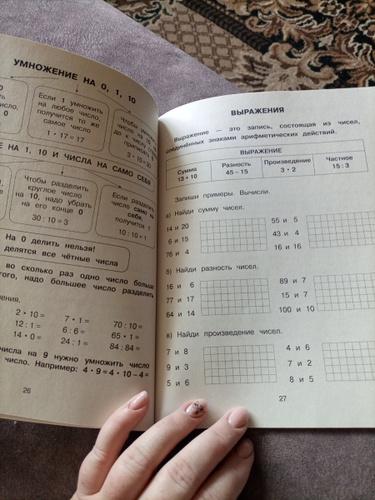 УМНОЖЕНИЕ НА 0, 1, 10
Если 1 умножить
на любое число,
получится то же
самое число
1 • 17 = 17
Чтобы
умножить
число
НА 1, 10 И ЧИСЛА НА САМО СЕБЯ
Чтобы разделить
круглое число
на 10, надо убрать
на его конце 0
30 : 10 = 3
Если
число
получится 1
10 : 10 = 1
На 0 делить нельзя!
делятся все чётные числа
во сколько раз одно число больше
надо большее число разделить
2 • 10 =
7 • 1 =
70 : 10 =
12 : 1 =
6 : 6 =
65 • 1 =
14 • 0 =
24 : 1 =
84 : 84 =
числа на 9 нужно умножить число
число. Например: 4 • 9 = 4 • 10 – 4 =
26
ВЫРАЖЕНИЯ
Выражение — это запись, состоящая из чисел,
соединённых знаками арифметических действий.
ВЫРАЖЕНИЕ
Сумма
13 + 10
Разность
45 – 15
Произведение
3 • 2
Частное
15 : 3
Запиши примеры. Вычисли.
а) Найди сумму чисел.
14 и 20
55 и 5
6 и 15
43 и 4
76 и 4
16 и 16
б) Найди разность чисел.
16 и 6
89 и 7
77 и 17
15 и 7
64 и 14
100 и 10
в) Найди произведение чисел.
7 и 8
4 и 6
9 и 3
7 и 2
5 и 6
8 и 5
27